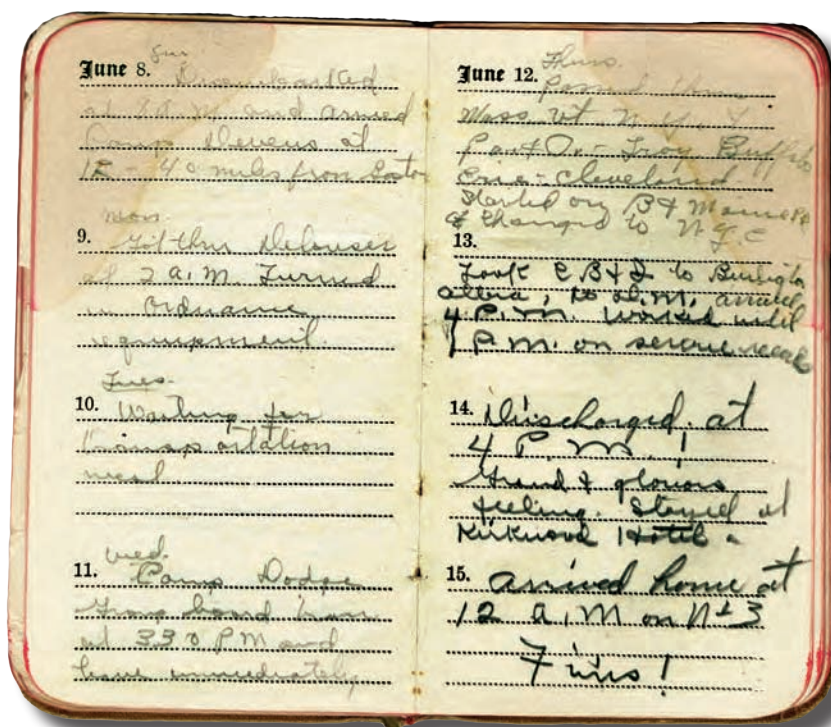 June 8. Sun
Disembarked
at 7 A.M and arrived
Camp Devens at
12 - 40 miles from Boston
Mon
9. Got thru Delouser
at 2 a.m. Turned
in Ordnance
equipment.
Tues.
10. Waiting for
transportation
west
Wed.
11. Camp Dodge
Group board train
at 330 PM and
leave immediately
June 12. Thurs.
Passed thru
Mass. Vt N.Y.
Pa & O. - Troy Buffalo
Erie - Cleveland
Started on B & Maine
& changed to N Y C
13.
Took C B & Q to Burlington
Albia, to D.M., arrived
4 P.M. Worked until
P.M. on service records
14. Discharged at
4 P.M. !
Grand & glorious
feeling. Stayed at
Kirkwood Hotel
15. Arrived home at
12 A.M on No 3
Finis!